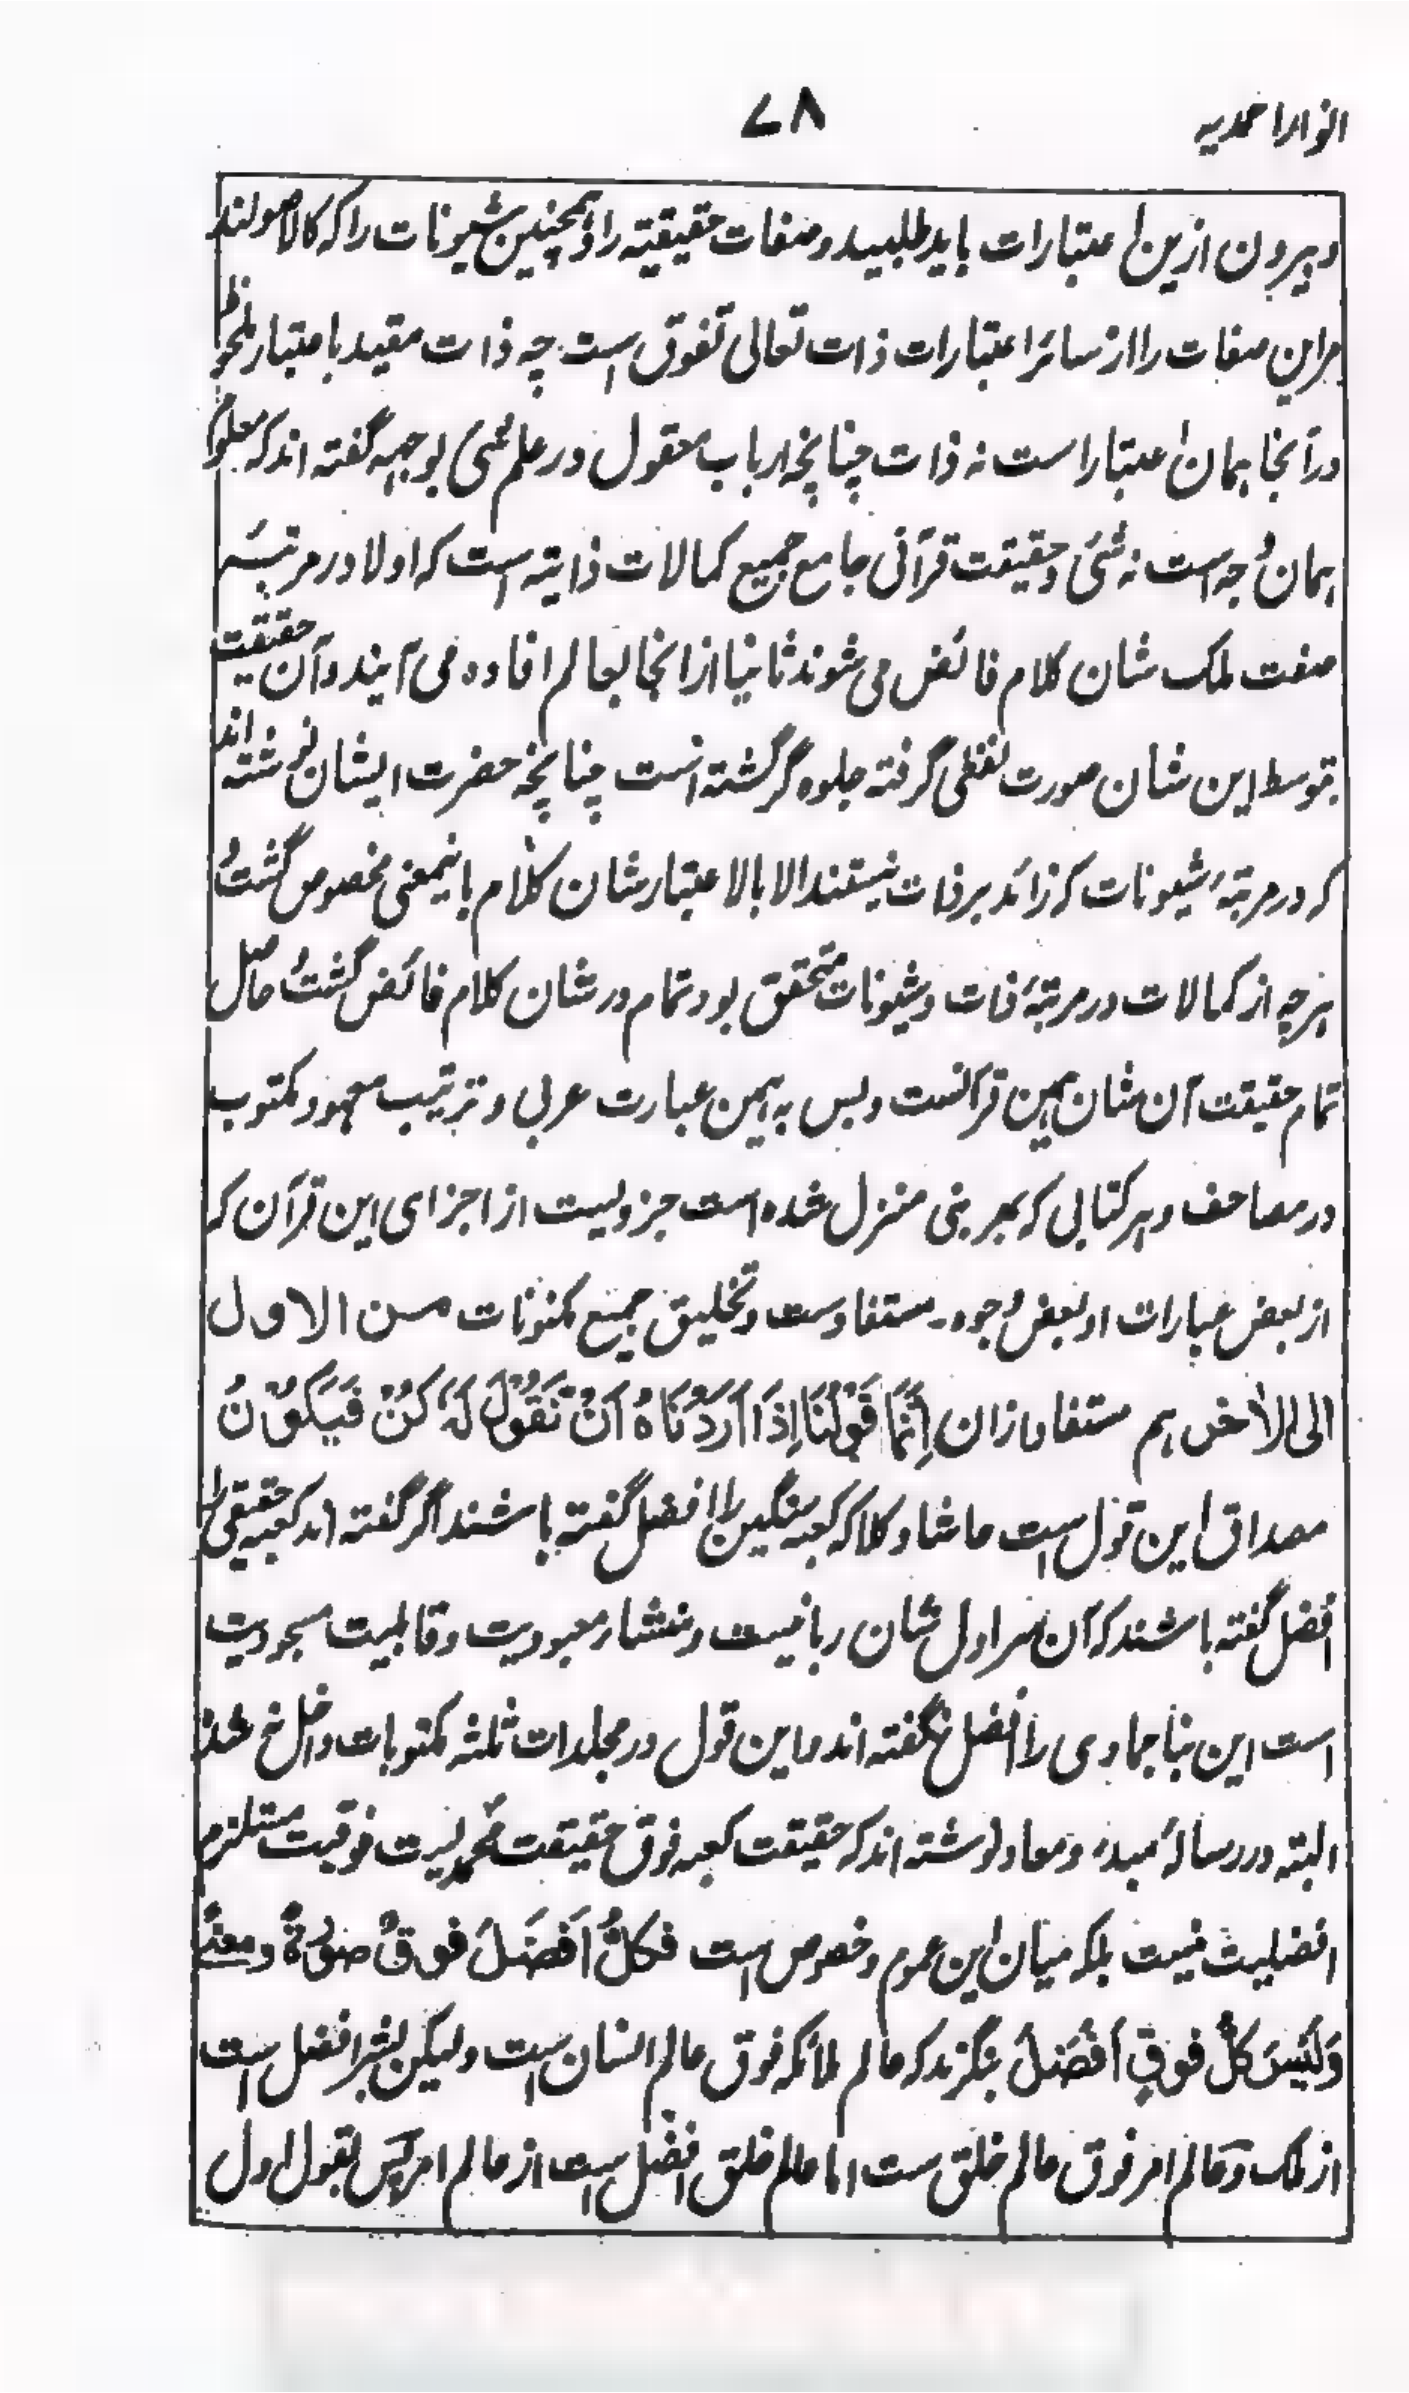 انوار احمدیه
۷۸
و بیرون ازین اعتبارات باید طلبید و صفات حقیقیته را و همچنین شیونات را که کالاصولند
مراین صفات را از سائر اعتبارات ذات تعالی تفوق است چه ذات مقید باعتبار ملحوظ
درآنجا همان اعتبار است نه ذات چنانچه ارباب معقول در علم شئ بوجهه گفته اند که معلوم
همان وجه است نه شئ و حقیقت قرآنی جامع جمیع کمالات ذاتیه است که اولا در مرتبهٔ
صفت ملک شان کلام فائض می شوند ثانیا ازانجا بعالم افاده می آیند و آن حقیقت
بتوسط این شان صورت لفظی گرفته جلوه گر گشته است چنانچه حضرت ایشان نوشته اند
که در مرتبهٔ شیونات که زائد بر ذات نیستند الا بالاعتبار شان کلام باینمعنی مخصوص گشته
هرچه از کمالات در مرتبهٔ ذات و شیونات متحقق بود تمام در شان کلام فائض گشته حاصل
تمام حقیقت آن شان همین قرآنست و بس به همین عبارت عربی و ترتیب معهود مکتوب
در مصاحف و هر کتابی که بهر نبی منزل شده است جزویست از اجزای این قرآن که
از بعض عبارات او ببعض وجوه مستفادست و تخلیق جمیع مکنونات من الاول
الی الآخر هم مستفاد ازان اِنَّمَا قَوْلُنَا اِذَا اَرَدْنَاهُ اَنْ نَقُوْلَ لَهُ كُنْ فَيَكُوْنُ
مصداق این قول است حاشا و کلا که کعبه سنگین را افضل گفته باشند اگر گفته اند کعبه حقیقی را
افضل گفته باشند که آن سر اول شان ربانیست و منشار معبودیت و قابلیت مسجودیت
است این بنا جمادی را افضل نگفته اند و این قول در مجلدات ثلثه مکتوبات داخل نشد
البته در رسالهٔ مبدء و معاد نوشته اند که حقیقت کعبه فوق حقیقت محمدیست فوقیت مستلزم
افضلیت نیست بلکه میان این عموم و خصوص است فکلُّ اَفضَلَ فوقٌ صورةً و معنًی
وَلَیسَ کلُّ فوقٍ اَفضَلُ بنگرند که عالم ملائکه فوق عالم انسان است ولیکن بشر افضل است
از ملک و عالم امر فوق عالم خلق ست اما عالم خلق افضل است از عالم امر پس بقول اول